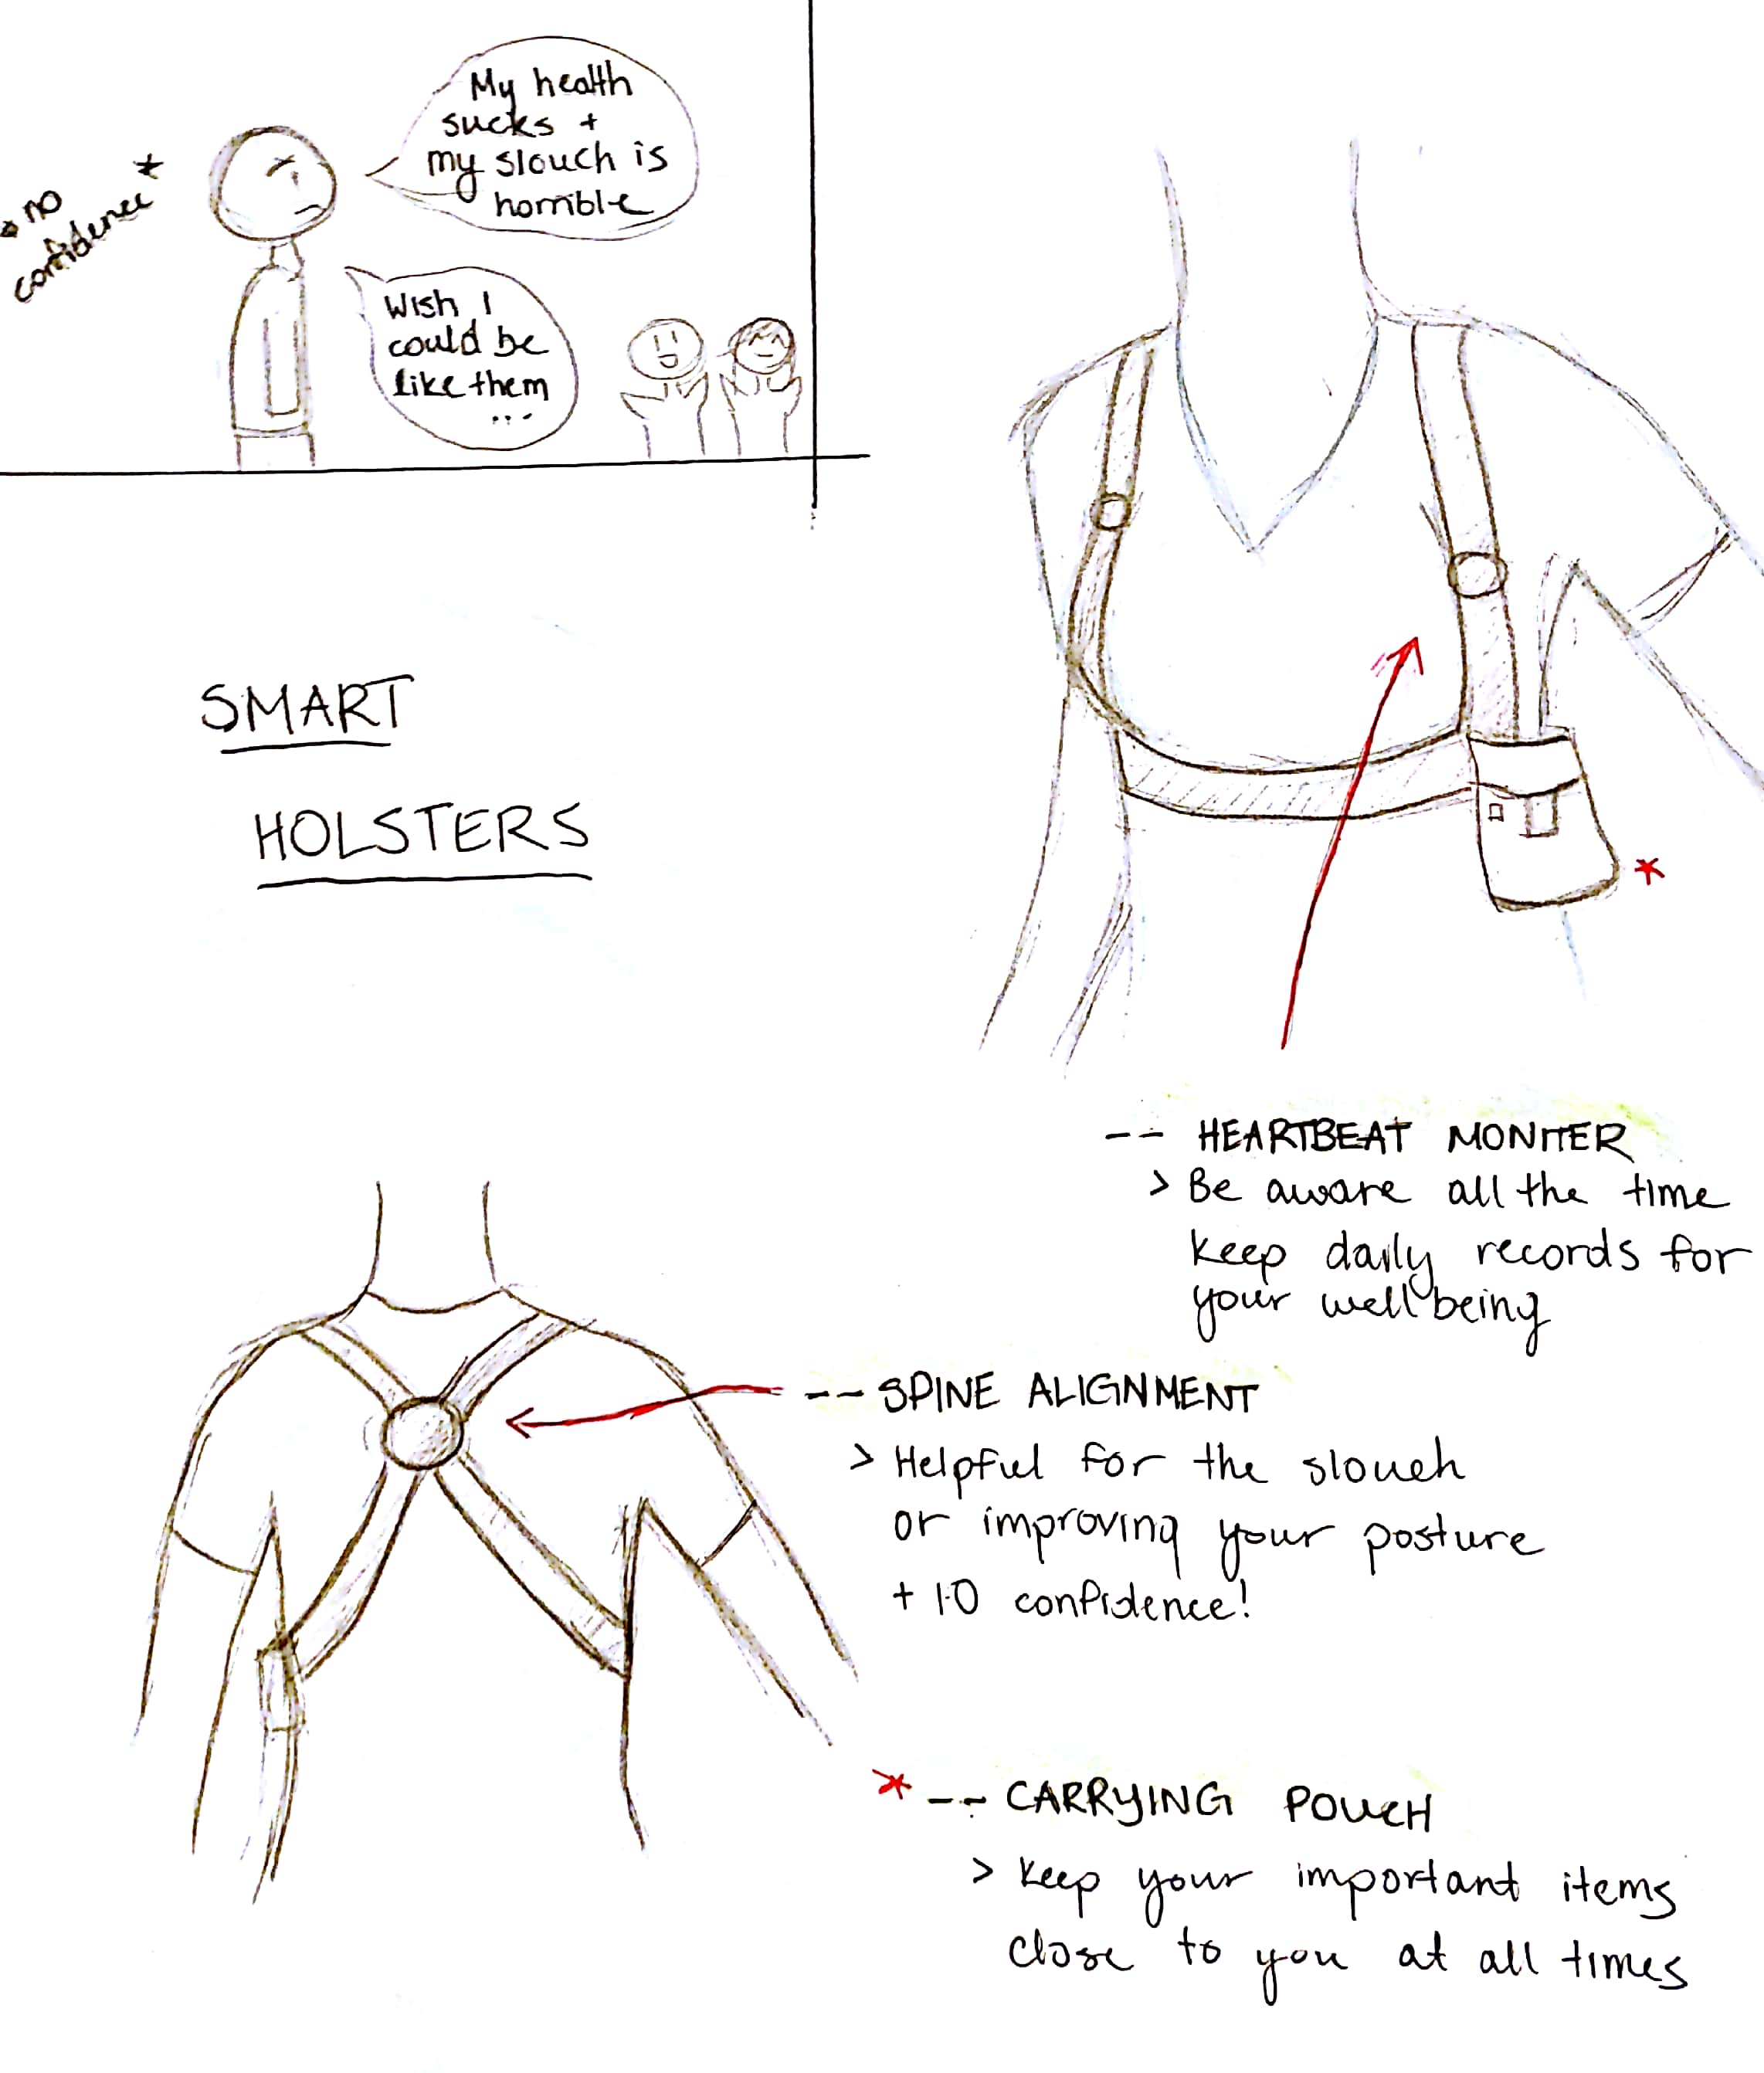 My health
sucks +
my slouch is
horrible
* no
confidence *
Wish I
could be
like them
...
SMART
HOLSTERS
-- HEARTBEAT MONITER
> Be aware all the time
keep daily records for
your wellbeing
-- SPINE ALIGNMENT
> Helpful for the slouch
or improving your posture
+ 10 confidence!
* -- CARRYING POUCH
> keep your important items
close to you at all times